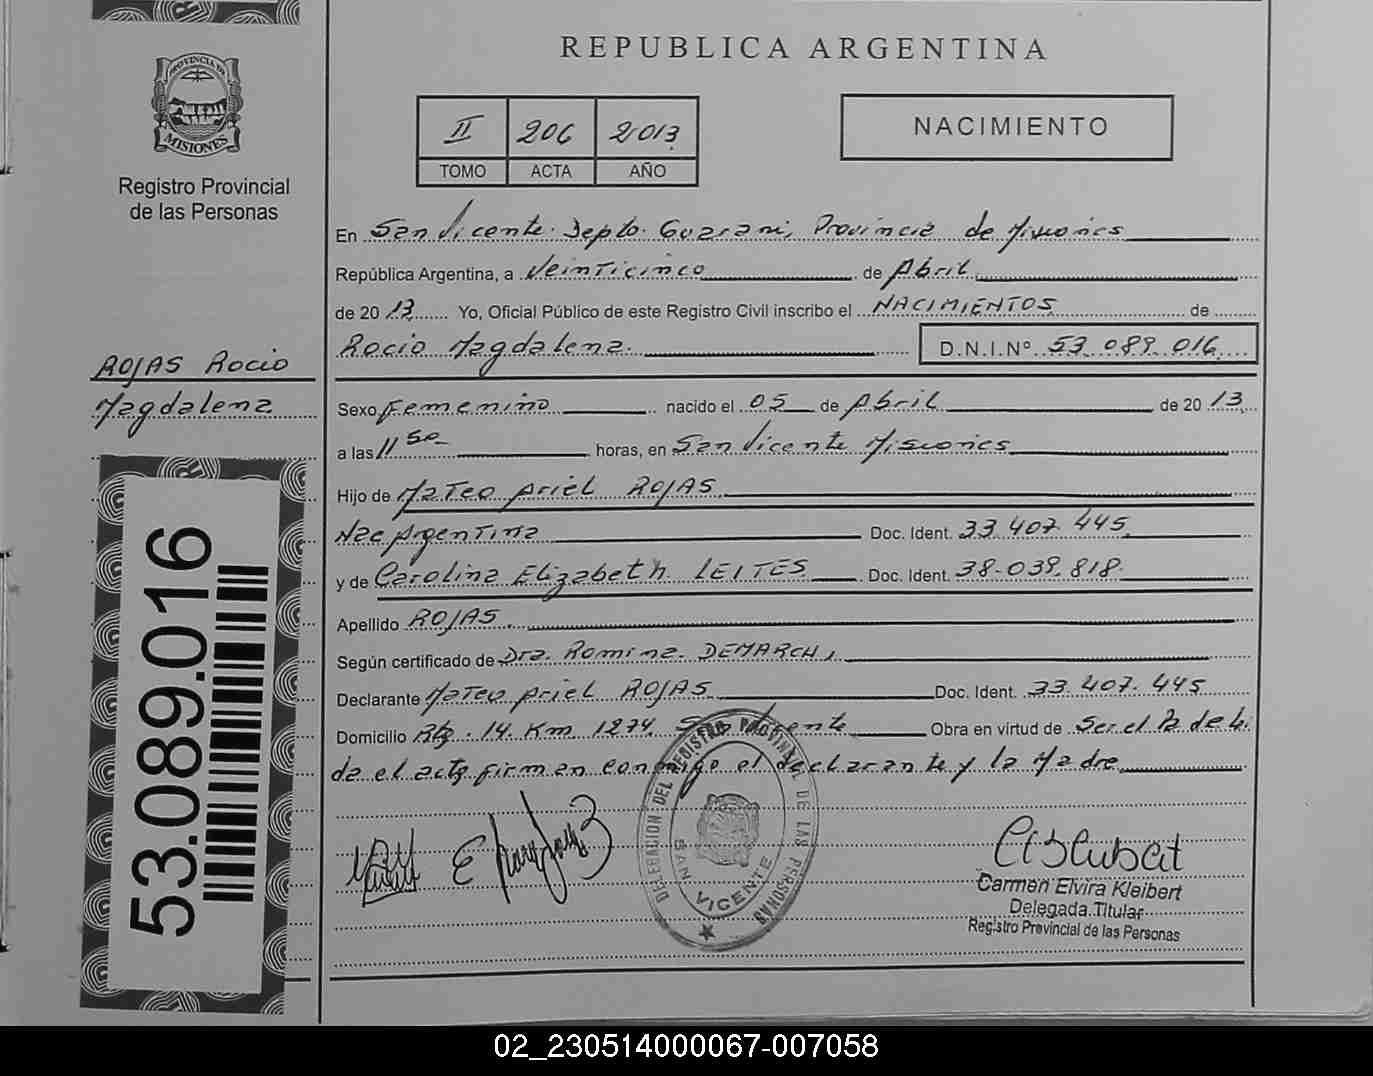 REPUBLICA ARGENTINA
PROVINCIA DE
MISIONES
Registro Provincial
de las Personas
II 206 2013
TOMO ACTA AÑO
NACIMIENTO
En San Vicente. Depto. Guarani, Provincia de Misiones
República Argentina, a Veinticinco de Abril
de 2013 Yo, Oficial Público de este Registro Civil inscribo el NACIMIENTOS de
Rocio Magdalena. D.N.I.Nº 53.089.016
ROJAS Rocio
Magdalena
Sexo Femenino nacido el 05 de Abril de 2013
a las 11 50 horas, en San Vicente Misiones
Hijo de Mateo Ariel ROJAS
Nac Argentina Doc. Ident. 33.407.445
y de Carolina Elizabeth LEITES Doc. Ident. 38.039.818
Apellido ROJAS.
Según certificado de Dra. Romina DEMARCHI
Declarante Mateo Ariel ROJAS Doc. Ident. 33.407.445
Domicilio Rta. 14. Km 1274. San Vicente Obra en virtud de Ser el Pa de Lei
da el acta firman conmigo el declarante y la Madre
53.089.016
DELEGACION DEL REGISTRO PROVINCIAL DE LAS PERSONAS
SAN VICENTE
Carmen Elvira Kleibert
Delegada Titular
Registro Provincial de las Personas
02_230514000067-007058